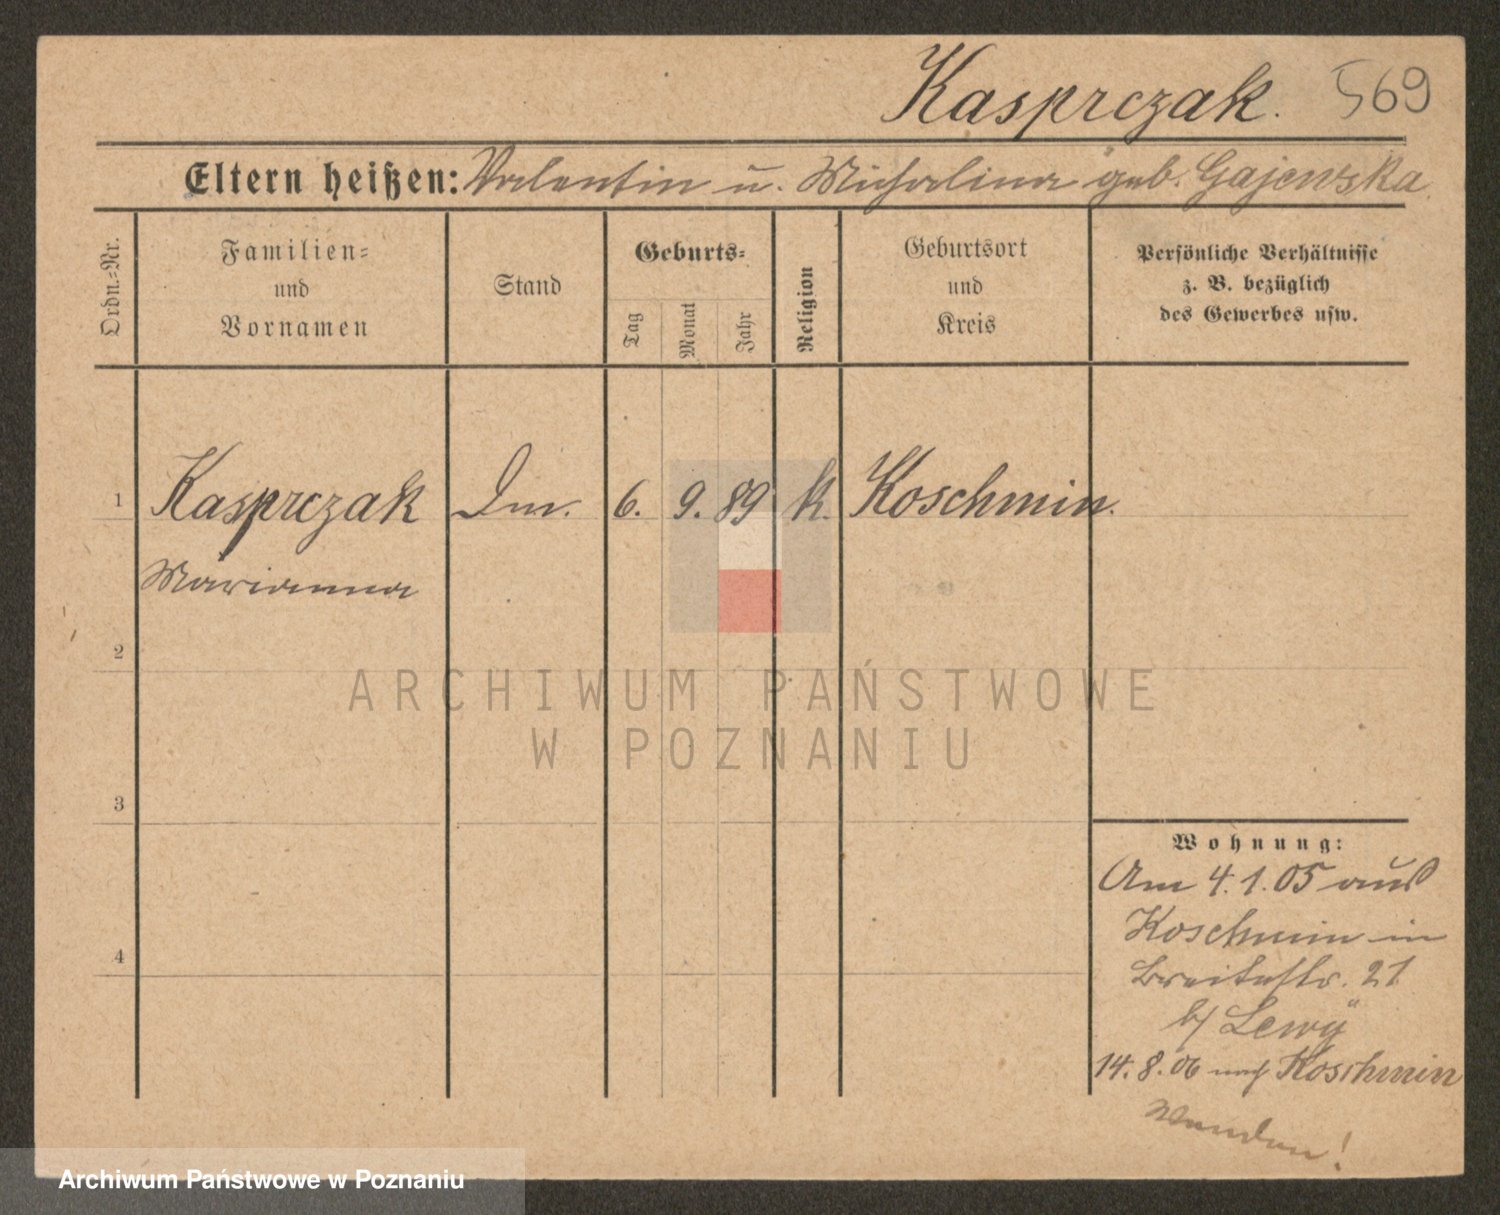 Kasprczak. 569
Eltern heißen: Valentin u. Michalina geb. Gajewska
Ordn.-Nr.
Familien-
und
Vornamen
Stand
Geburts-
Tag
Monat
Jahr
Religion
Geburtsort
und
Kreis
Persönliche Verhältnisse
z. B. bezüglich
des Gewerbes usw.
1 Kasprczak 6. 9. 89 k. Koschmin.
Marianna
2
ARCHIWUM PAŃSTWOWE
W POZNANIU
3
Wohnung:
Am 4.1.05 aus
Koschmin in
4
Breitestr. 21
b/ Lewÿ
14.8.06 nach Koschmin
Wenden!
Archiwum Państwowe w Poznaniu